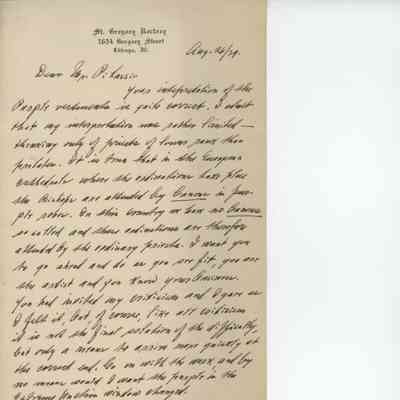 St. Gregory Rectory
1634 Gregory Street
Chicago, Ill.
Aug. 14/29.
Dear Mr.
Your interpretation of the
Purple vestments is quite correct. I admit
that my interpretation was rather limited —
thinking only of priests of lower rank than
prelates. It is true that in the European
cathedrals where the ordinations take place
the Bishops are attended by Canons in pur-
ple robes. In this country we have no Canons
so called and those ordinations are therefore
attended by the ordinary priests. I want you
to go ahead and do as you see fit, you are
the artist and you know your business.
You had invited my criticism and I gave as
I felt it, but of course, like all criticism
it is not the final solution of the difficulty,
but only a means to arrive more quickly at
the correct end. Go on with the work, and by
no means would I want the people in the
Extreme Unction window changed.